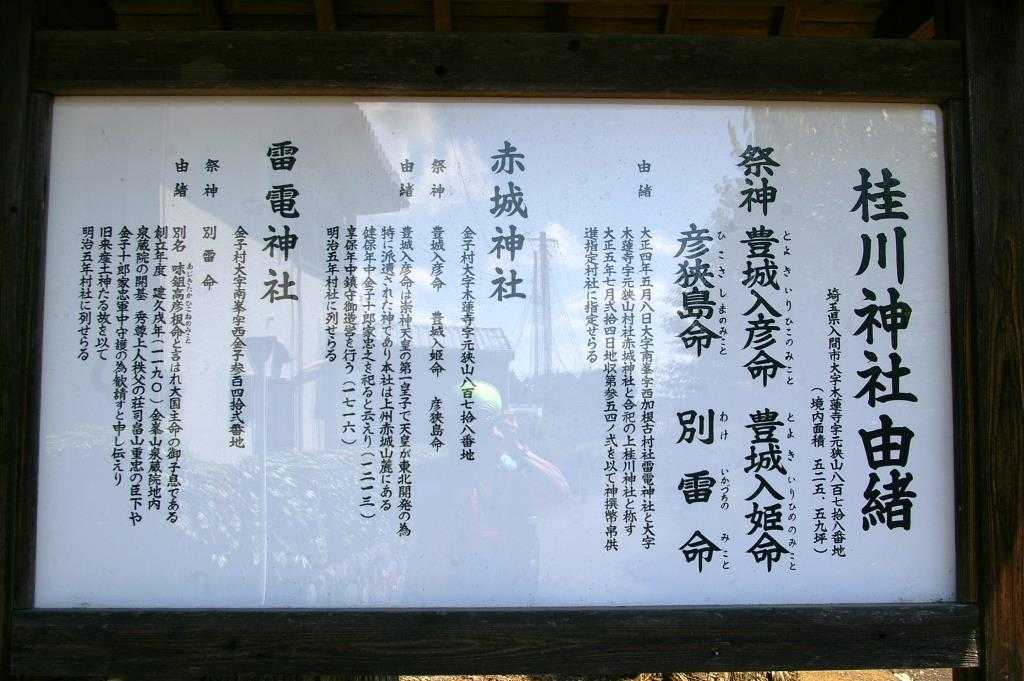 桂川神社由緒
埼玉県入間市大字木蓮寺字元狭山八百七拾八番地
（境内面積 五二五、五九坪）
祭神 豊城入彦命 豊城入姫命
とよきいりひこのみこと とよきいりひめのみこと
彦狭島命 別雷命
ひこさしまのみこと わけいかづちのみこと
由緒
大正四年五月八日大字南峯字西加根古村社雷電神社と大字
木蓮寺字元狭山村社赤城神社と合祀の上桂川神社と称す
大正五年七月弐拾四日地収第参五四ノ弐を以て神撰幣帛供
進指定村社に指定せらる
赤城神社
金子村大字木蓮寺字元狭山八百七拾八番地
祭神 豊城入彦命 豊城入姫命 彦狭島命
由緒 豊城入彦命は崇神天皇の第一皇子で天皇が東北開発の為
特に派遣された神であり本社は上州赤城山麓にある
健保年中金子十郎家忠之を祀ると云えり（一二一三）
享保年中鎮守御造営を行う（一七一六）
明治五年村社に列せらる
雷電神社
金子村大字南峯字西金子参百四拾弐番地
祭神 別雷命
由緒 別名 味鉏高彦根命と言はれ大国主命の御子息である
あじすきたかひこねのみこと
創立年度 建久戌年（一一九〇）金峯山泉蔵院地内
泉蔵院の開基 秀尊上人秩父の荘司畠山重忠の臣下や
金子十郎家忠軍中守護の為勧請すと申し伝えり
旧来産土神たる故を以て
明治五年村社に列せらる